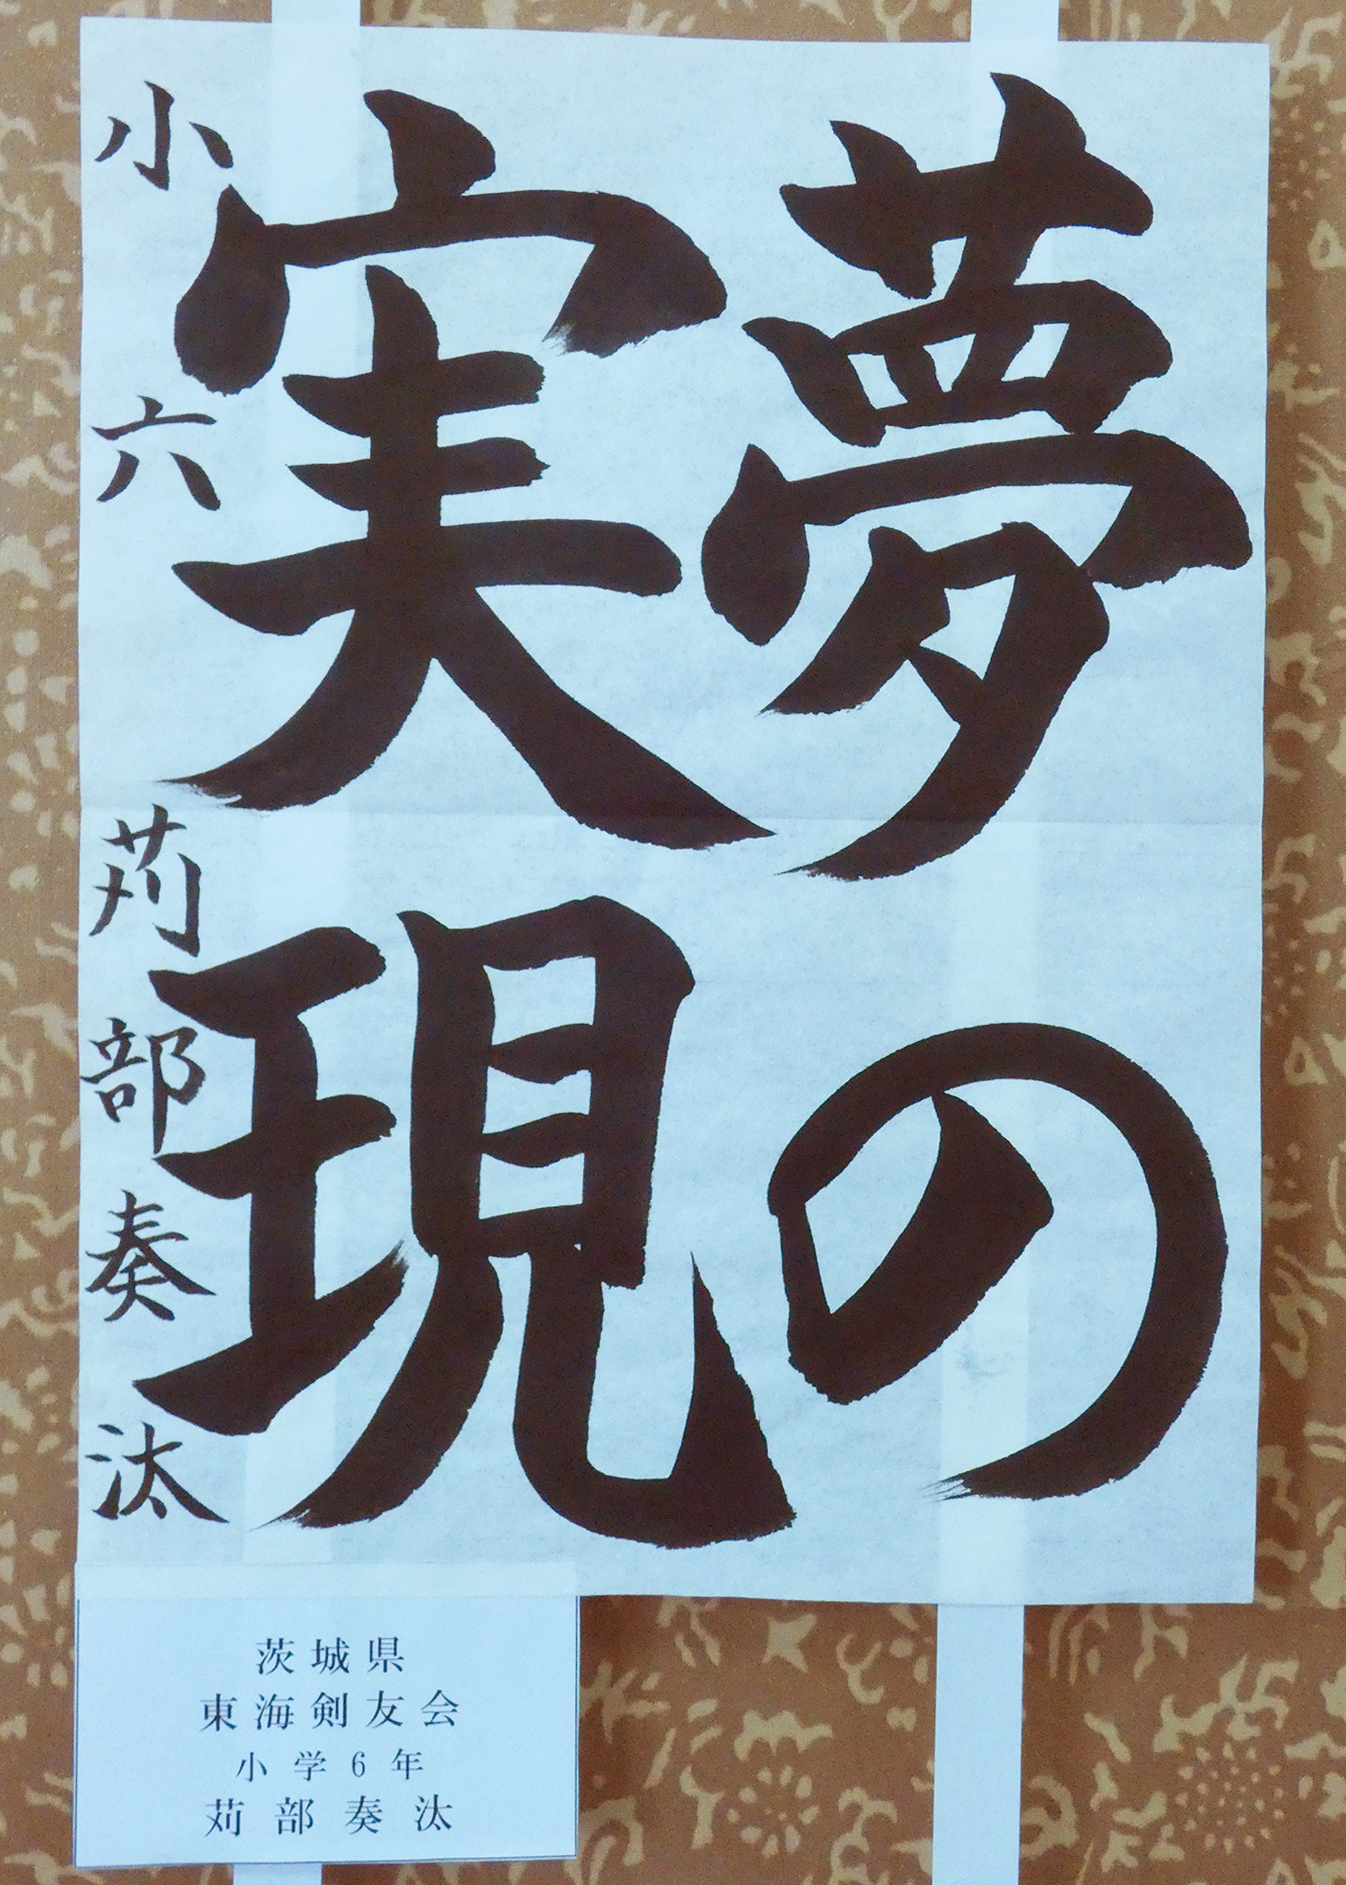 夢の
実現
小六 苅部奏汰
茨城県
東海剣友会
小学6年
苅部奏汰